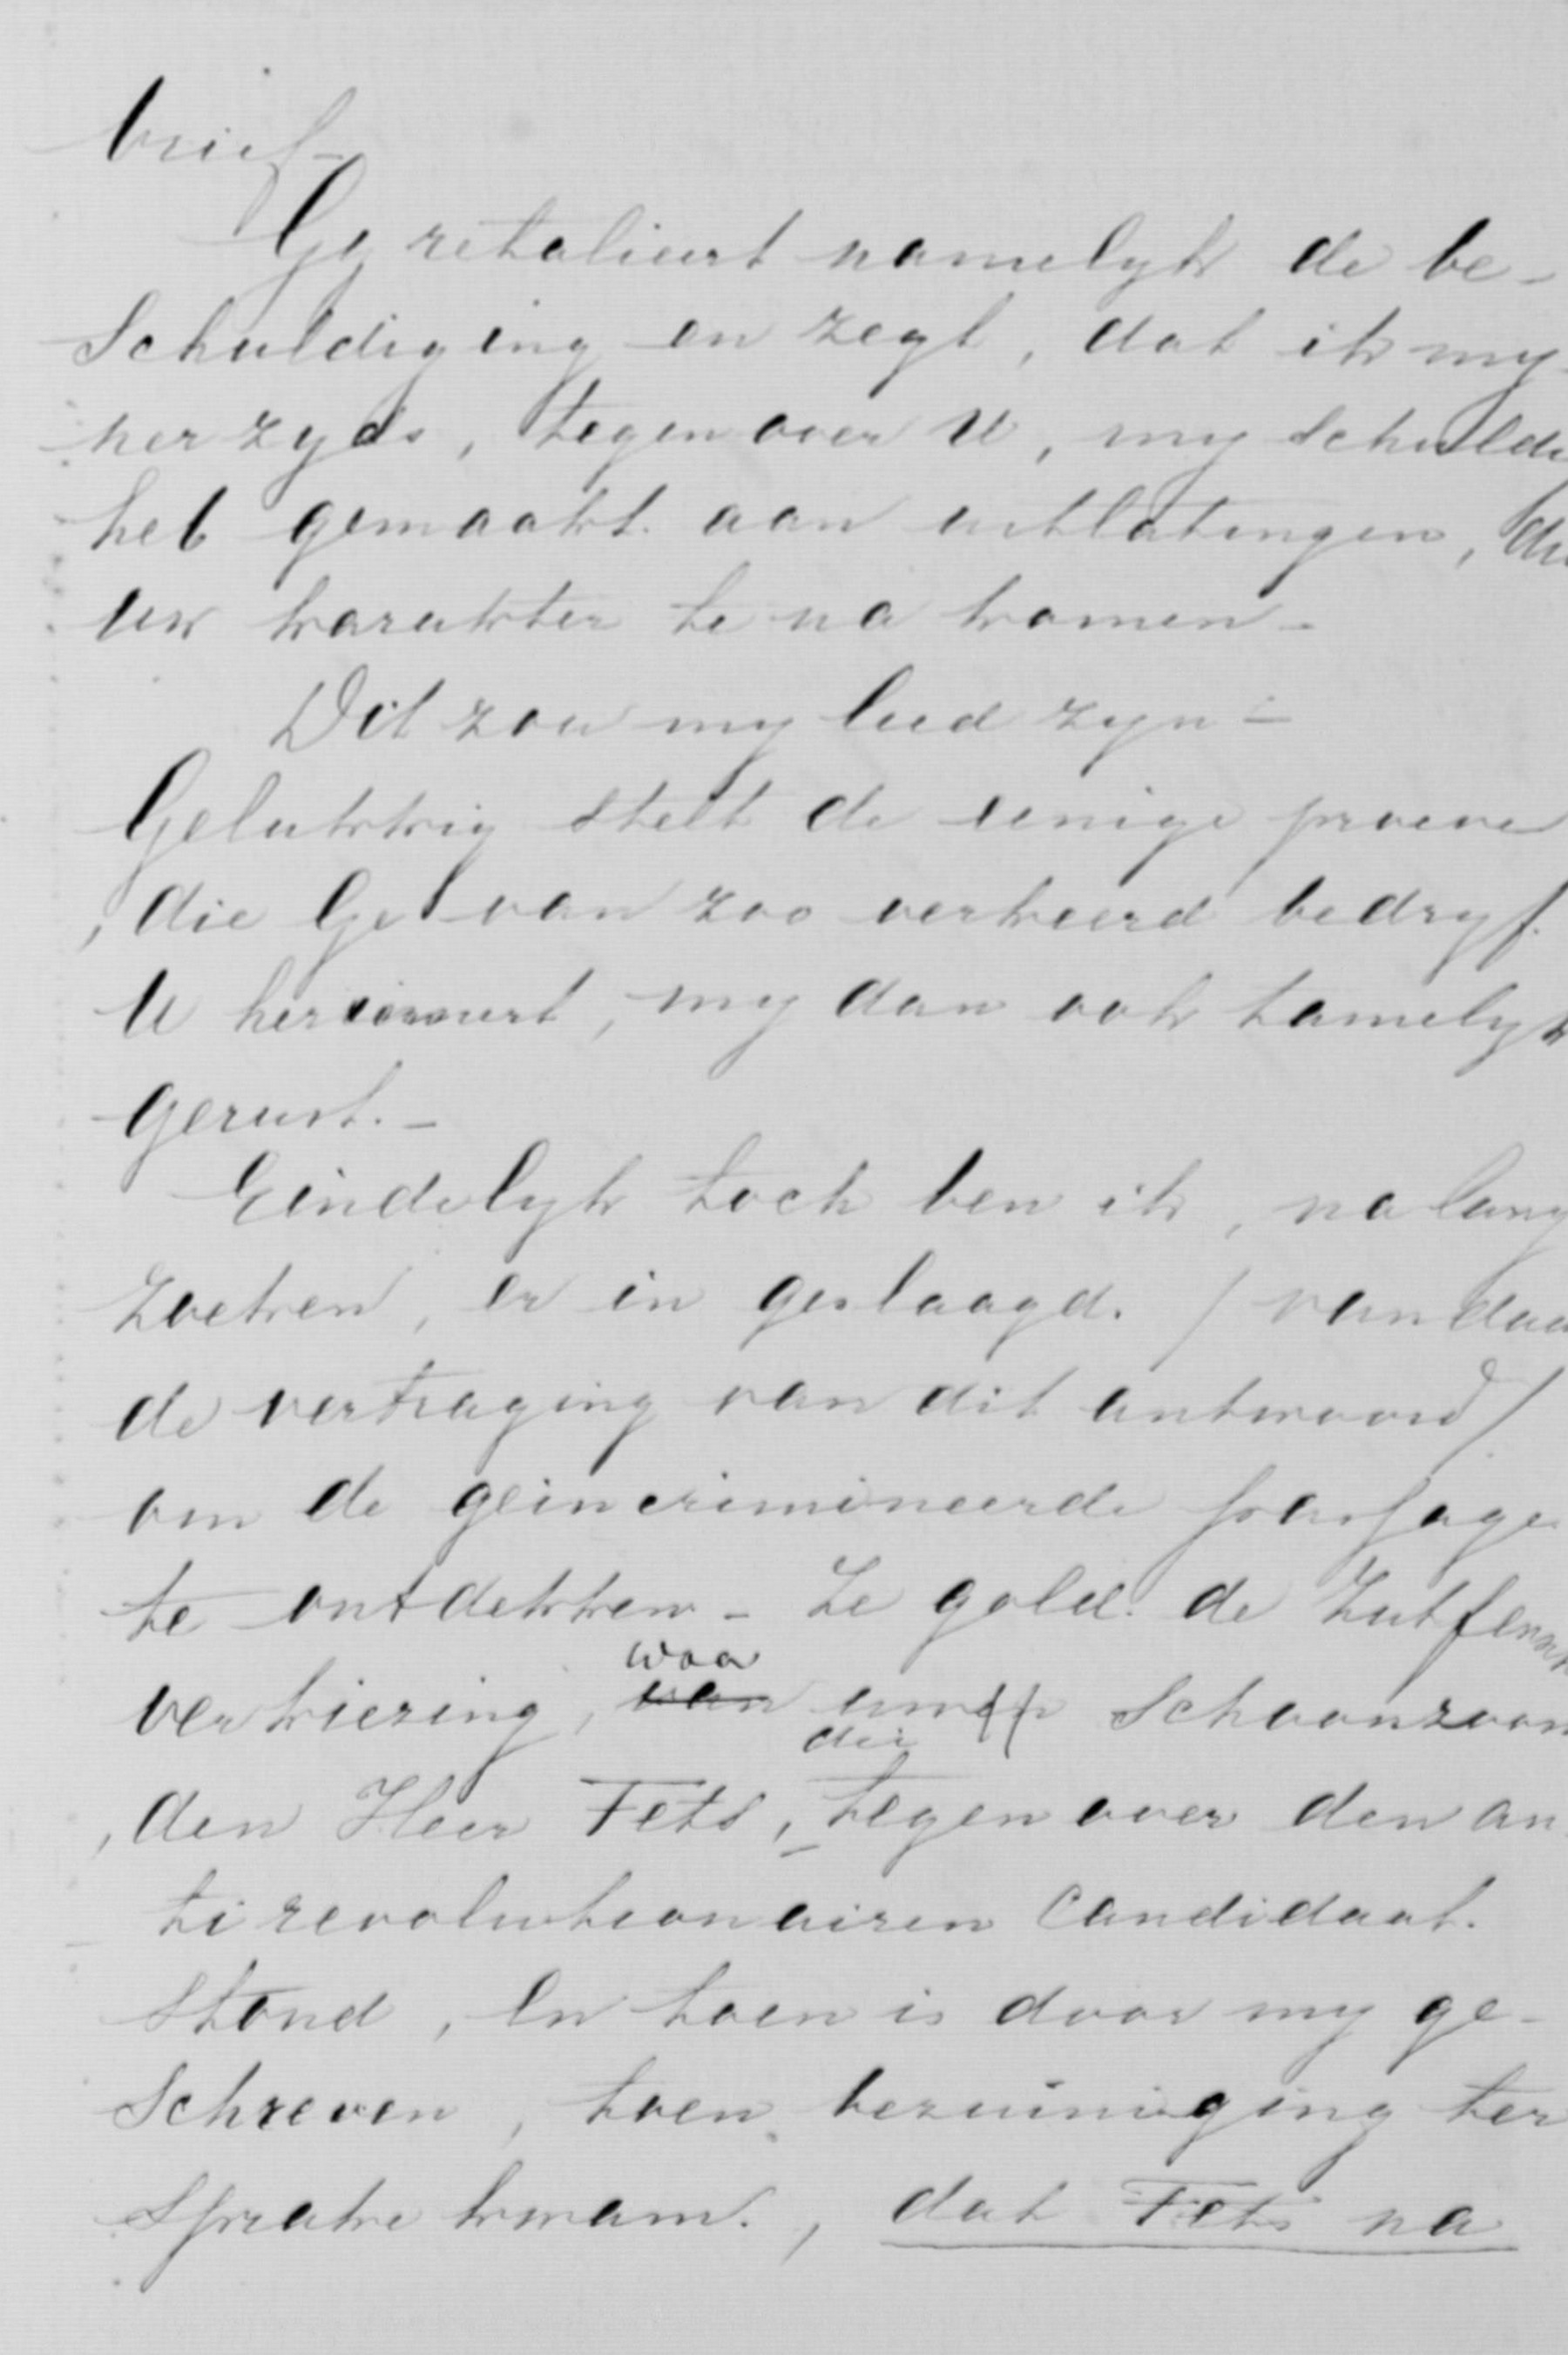 brief–
Gy retalieert namelyk de be-
schuldiging en zegt, dat ik my-
nerzyds, tegenover U, my schuldi
heb gemaakt aan uitlatingen, di
uw karakter te na komen –
Dit zou my leed zyn –
Gelukkig stelt de eenige proeve
, die Ge van zoo verkeerd bedryf
U herinnert, my dan ook tamelyk
gerust. –
Eindelyk toch ben ik, na lang
zoeken, er in geslaagd. / van daa
de vertraging van dit antwoord /
om de geincrimineerde passage
te ontdekken – Ze gold de Zutfensch
verkiezing, ~~van~~ waa uw Schoonzoon
, den Heer Fets, die tegenover den an
tirevolutionairen Candidaat.
stond, En toen is door my ge-
schreven, toen bezuiniging ter
sprake kwam., dat Fets na